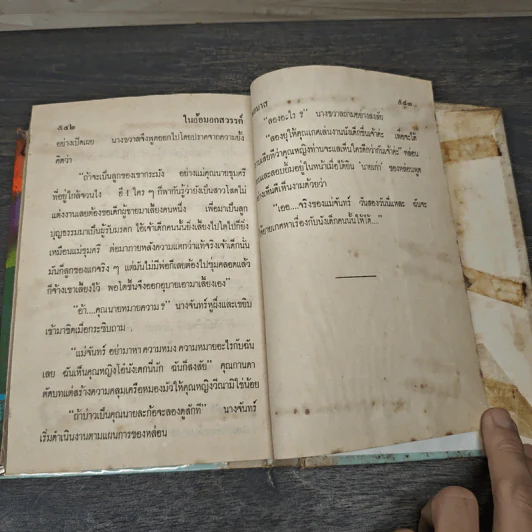 ๕๔๒
ในอ้อมอกสวรรค์
อย่างเปิดเผย นางขวาลจึงพูดออกไปโดยปราศจากความยั้ง
คิดว่า
“ถ้าจะเป็นลูกของเรากระมัง อย่างแม่คุณนายชุมศรี
ที่อยู่ใกล้ชวนไง ฮึ! ใคร ๆ ก็พากันรู้ว่ายังเป็นสาวโสดไม่
แต่งงานเลยต้องขอเด็กผู้ชายมาเลี้ยงคนหนึ่ง เพื่อมาเป็นลูก
บุญธรรมมาเป็นผู้รับมรดก ไอ้เจ้าเด็กคนนั้นยิ่งเลี้ยงไปโตไปก็ยิ่ง
เหมือนแม่ชุมศรี ต่อมาภายหลังความแตกว่าแท้จริงเจ้าเด็กนั่น
มันก็ลูกของแกจริง ๆ แต่มันไม่มีพ่อก็เลยต้องไปซุ่มคลอดแล้ว
ก็จ้างเขาเลี้ยงไว้ พอโตขึ้นจึงออกอุบายเอามาเลี้ยงเอง”
“อ้า....คุณนายหมายความ ?” นางจันทร์หูผึ่งและเขยิบ
เข้ามาชิดเมื่อกระซิบถาม
“แม่จันทร์ อย่ามาหา ความหมง ความหมายอะไรกับฉัน
เลย ฉันเห็นคุณหญิงโอ๋นังเด็กนี่นัก ฉันก็สงสัย” คุณกานดา
คัดบทแต่สร้างความคลุมเครือหมองมัวให้คุณหญิงวีณามิใช่น้อย
“ถ้าบ่าวเป็นคุณนายละก้อจะลองดูสักที” นางจันทร์
เริ่มดำเนินงานตามแผนการของหล่อน
๕๔๓
“ลองอะไร ?” นางขวาลถามอย่างสงสัย
“ลองยุให้คุณเกดเล่นงานนังเด็กชื่นเจ้าค่ะ เพื่อจะได้
หล่อน
“เออ....จริงของแม่จันทร์ วันสองวันนี่แหละ ฉันจะ
หาเรื่องกับนังเด็กคนนั้นให้ได้...”